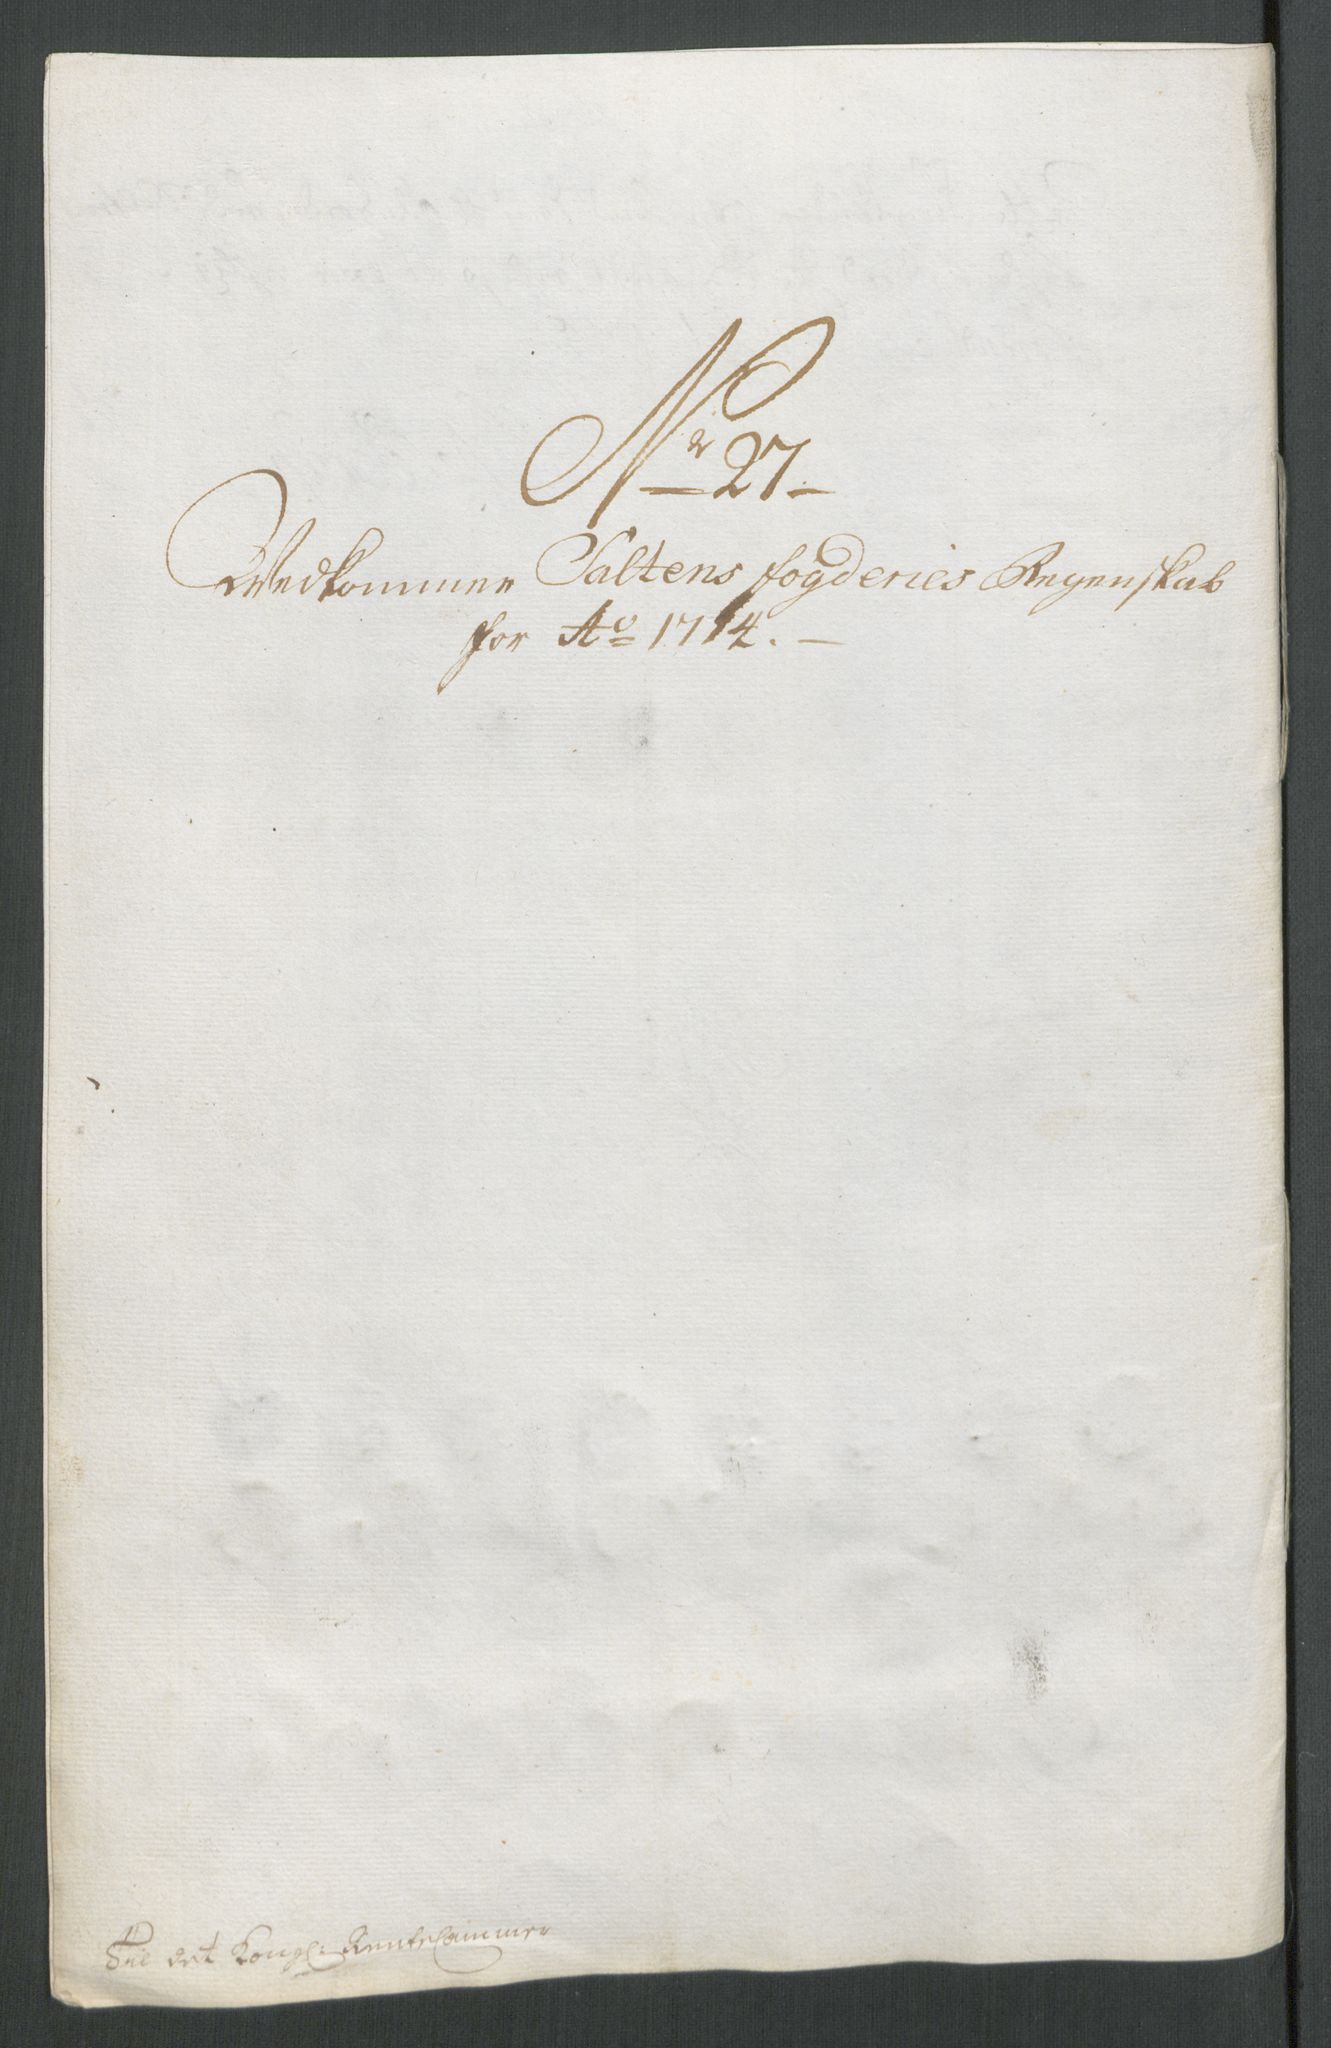 Nr 27.
Vedkommer Saltens fogderies Regenskab
for Ao 1714.
Til det Kongl: Rentecammer